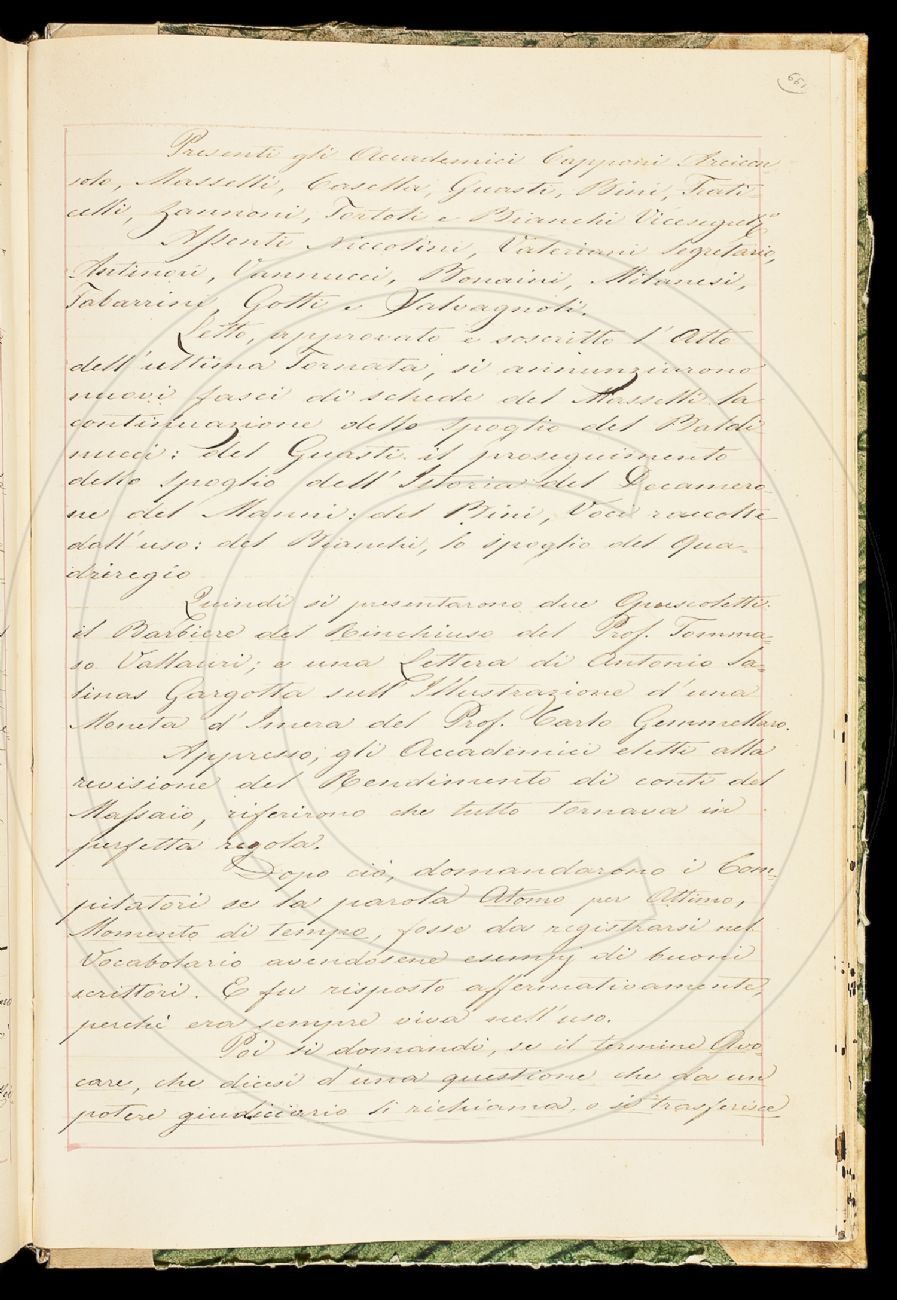 661
Presenti gli Accademici Capponi Arcicon
solo, Masselli, Casella, Guasti, Bini, Frati-
celli, Zannoni, Tortoli e Bianchi Vicesegret.º
Assenti Niccolini, Valeriani Segretario,
Antinori, Vannucci, Bonaini, Milanesi,
Tabarrini, Gotti e Salvagnoli.
Letto, approvato e soscritto l'Atto
dell'ultima Tornata, si annunziarono
nuovi fasci di schede del Masselli la
continuazione dello spoglio del Baldi-
nucci: del Guasti il proseguimento
dello spoglio dell'Istoria del Decamero-
ne del Manni: del Bini, Voci raccolte
dall'uso: del Bianchi, lo spoglio del Qua-
driregio
Quindi si presentarono due Opuscoletti:
il Barbiere del Rinchiuso del Prof. Tomma-
so Vallauri; e una Lettera di Antonio Sa-
linas Gargotta sull'Illustrazione d'una
Moneta d'Imera del Prof. Carlo Gemmellaro.
Appresso, gli Accademici eletti alla
revisione del Rendimento di conti del
Massaio, riferirono che tutto tornava in
perfetta regola.
Dopo ciò, domandarono i Com-
pilatori se la parola Atomo per Attimo,
Momento di tempo, fosse da registrarsi nel
Vocabolario avendosene esempj di buoni
scrittori. E fu risposto affermativamente,
perchè era sempre viva nell'uso.
Poi si domandò, se il termine Avo-
care, che dicesi d'una questione che da un
potere giudiciario si richiama, o si trasferisce